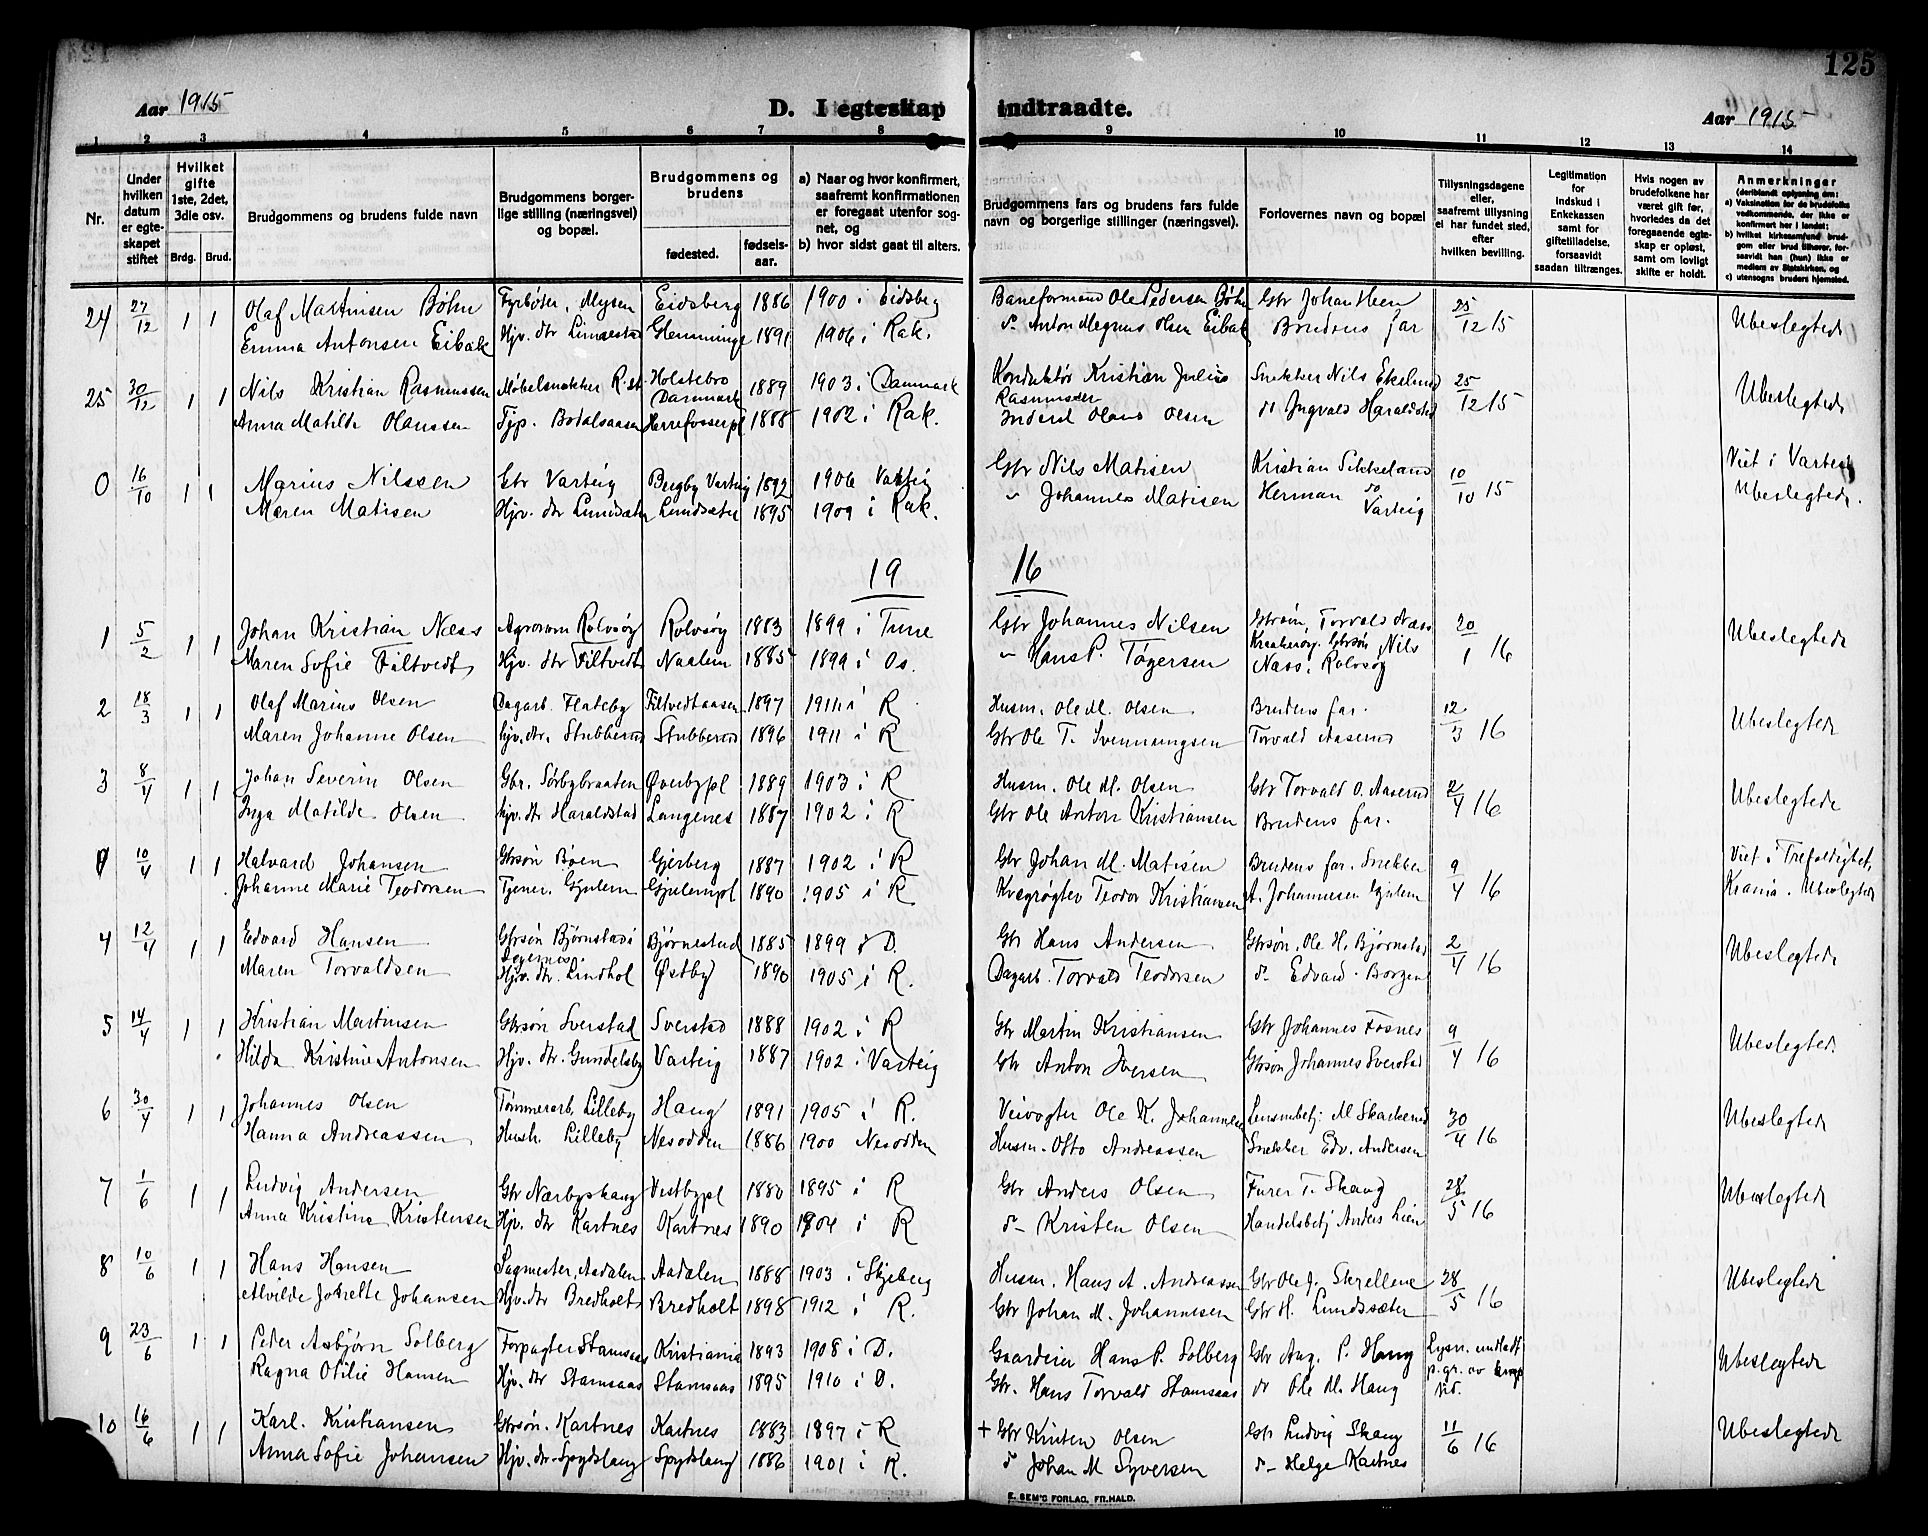 125
Aar 1915 D. I egteskap indtraadte. Aar 1915
1 2 3 4 5 6 7 8 9 10 11 12 13 14
Nr.
Under hvilken datum er egteskapet stiftet
Hvilket gifte 1ste, 2det, 3die osv.
Brdg. Brud.
Brudgommens og brudens fulde navn
Brudgommens borgerlige stilling (næringsvei) og bopæl.
Brudgommens og brudens
fødested. fødselsaar.
a) Naar og hvor konfirmert, saafremt konfirmationen er foregaat utenfor sognet, og
b) hvor sidst gaat til alters.
Brudgommens fars og brudens fars fulde navn og borgerlige stillinger (næringsvei).
Forlovernes navn og bopæl
Tillysningsdagene eller, saafremt tillysning ei har fundet sted, efter hvilken bevilling.
Legitimation for indskud i Enkekassen samt for giftetilladelse, forsaavidt saadan tiltrænges.
Hvis nogen av brudefolkene har været gift før, hvorledes da det foregaaende egteskap er opløst, samt om lovligt skifte er holdt.
Anmerkninger
(deriblandt oplysning om:
a) Vaksination for de brudefolks vedkommende, der ikke er konfirmert her i landet;
b) hvilket kirkesamfund brudgom eller brud tilhører, forsaavidt han (hun) ikke er medlem av Statskirken, og
c) utensogns bruders hjemsted.
24 27/12 1 1 Olaf Martinsen Böhn Fyrböter, Mysen Eidsberg 1886 1900 i Eidsberg Baneformand Ole Pedersen Böhn Gbr Johan Heen 25/12 15 Ubeslegtede
Emma Antonsen Eibak Hjv. dtr Limaestad Glemminge 1891 1906 i Rak. do Anton Magnus Olsen Eibak Brudens far
25 30/12 1 1 Nils Kristian Rasmussen Møbelsnekker R.st. Holstebro Danmark 1889 1903 i Danmark Konduktör Kristian Julius Rasmussen Snekker Nils Ekelund 25/12 15 Ubeslegtede
Anna Matilde Olaussen Tjp. Bodalsaasen Herrefosserpl 1888 1902 i Rak. Inderst Olaus Olsen do Ingvald Haraldstad
0 16/10 1 1 Marius Nilssen Gbr Varteig Bergby Varteig 1892 1906 Varteig Gbr Nils Matisen Kristian Sikkeland 10/10 15 Viet i Varteig
Maren Matisen Hjv. dtr Lundsæter Lundsæter 1895 1909 i Rak. " Johannes Matisen Herman do Varteig Ubeslegtede.
19 16
1 5/2 1 1 Johan Kristian Næss Agronom Rolvsöy Rolvsöy 1883 1899 i Tune Gbr Johannes Nilsen Gbrsön, Torvald Næss 20/1 16 Ubeslegtede
Maren Sofie Filtvedt Hjv. dtr Filtvedt Naalem 1885 1899 i Os. " Hans P. Tögersen Kraakeröy. Gbrsön Nils Næss. Rolvsöy
2 18/3 1 1 Olaf Marius Olsen Dagarb. Flateby Filtvedtaasen 1897 1911 i R Husm. Ole M. Olsen Brudens far. 12/3 16 Ubeslegtede
Maren Johanne Olsen hjv. dtr. Stubberud Stubberud 1896 1911 i R Gbr Ole T. Svenningsen Torvald Aaserud
3 8/4 1 1 Johan Severin Olsen Gbr. Sörbybraaten Överbypl 1889 1903 i R Husm. Ole M. Olsen Gbr Torvald O. Aaserud 2/4 16 Ubeslegtede
Inga Matilde Olsen hjv. dtr Haraldstad Langenes 1887 1902 i R Gbr Ole Anton Kristiansen Brudens far.
0 10/4 1 1 Halvard Johansen Gbrsön Boen Gjerberg 1887 1902 i R Gbr Johan M. Matisen Brudens far. Snekker 9/4 16 Viet i Trefoldighet,
Johanne Marie Teodorsen Tjener. Gjulem Gjulempl 1890 1905 i R Kvægrögter Teodor Kristiansen A. Johannesen Gjulem Krania. Ubeslegtede
4 12/4 1 1 Edvard Hansen Gbrsön Björnstad i Degernes. Björnestad 1885 1899 i D. Gbr Hans Andersen Gbrsön. Ole H. Björnstad 2/4 16 Ubeslegtede
Maren Torvaldsen Hjv. dtr. Lindhol Östby 1890 1905 i R. Dagarb. Torvald Teodorsen do Edvard Borgen
5 14/4 1 1 Kristian Martinsen Gbrsön Sverstad Sverstad 1888 1902 i R Gbr Martin Kristiansen Gbr Johannes Fosnes 9/4 16 Ubeslegtede
Hilda Kristine Antonsen Hjv. dtr. Gundelsby Varteig 1887 1902 i Varteig Gbr Anton Iversen Gbrsön Johannes Sverstad
6 30/4 1 1 Johannes Olsen Tömmerarb. Lilleby Haug 1891 1905 i R. Veivogter Ole K. Johannesen Lensmbetj. M Skakerud 30/4 16 Ubeslegtede
Hanna Andreassen Hush. Lilleby Nesodden 1886 1900 Nesodden Husm. Otto Andreassen Snekker Edv. Andersen
7 1/6 1 1 Ludvig Andersen Gbr Nærbyshaug Vestbypl 1880 1895 i R Gbr Anders Olsen Furer T. Skaug 28/5 16 Ubeslegtede
Anna Kristine Kristensen Hjv. dtr Kartnes Kartnes 1890 1904 i R do Kristen Olsen Handelsbetj Anders Lien
8 10/6 1 1 Hans Hansen Sagmester, Aadalen Aadalen 1888 1903 i Skjeberg Husm. Hans A. Andreassen Gbr Ole J. Skrellene 28/5 16 Ubeslegtede
Alvilde Josette Johansen Hjv. dtr Bredholt Bredholt 1898 1912 i R. Gbr Johan M. Johannesen Gbr H. Lundsæter
9 23/6 1 1 Peder Asbjørn Solberg Forpagter Stamsaas Kristiania 1893 1908 i D. Gaardeier Hans P. Solberg Gbr Aug. P. Haug Lysn. undladt p. gr. av Ubeslegtede
Ragna Otilie Hansen Hjv. dtr Stamsaas Stamsaas 1895 1910 i D. Gbr. Hans Torvald Stamsaas do Ole M. Haug
10 16/6 1 1 Karl. Kristiansen Gbrsön. Kartnes Kartnes 1883 1897 i R + Gbr Kristen Olsen Gbr Ludvig Skaug 11/6 16 Ubeslegtede
Anna Sofie Johansen Hjv. dtr. Spydslaug Spydslaug 1886 1901 i R. do Johan M Syversen do Helge Kartnes
E. SEM'S FORLAG, FR.HALD.